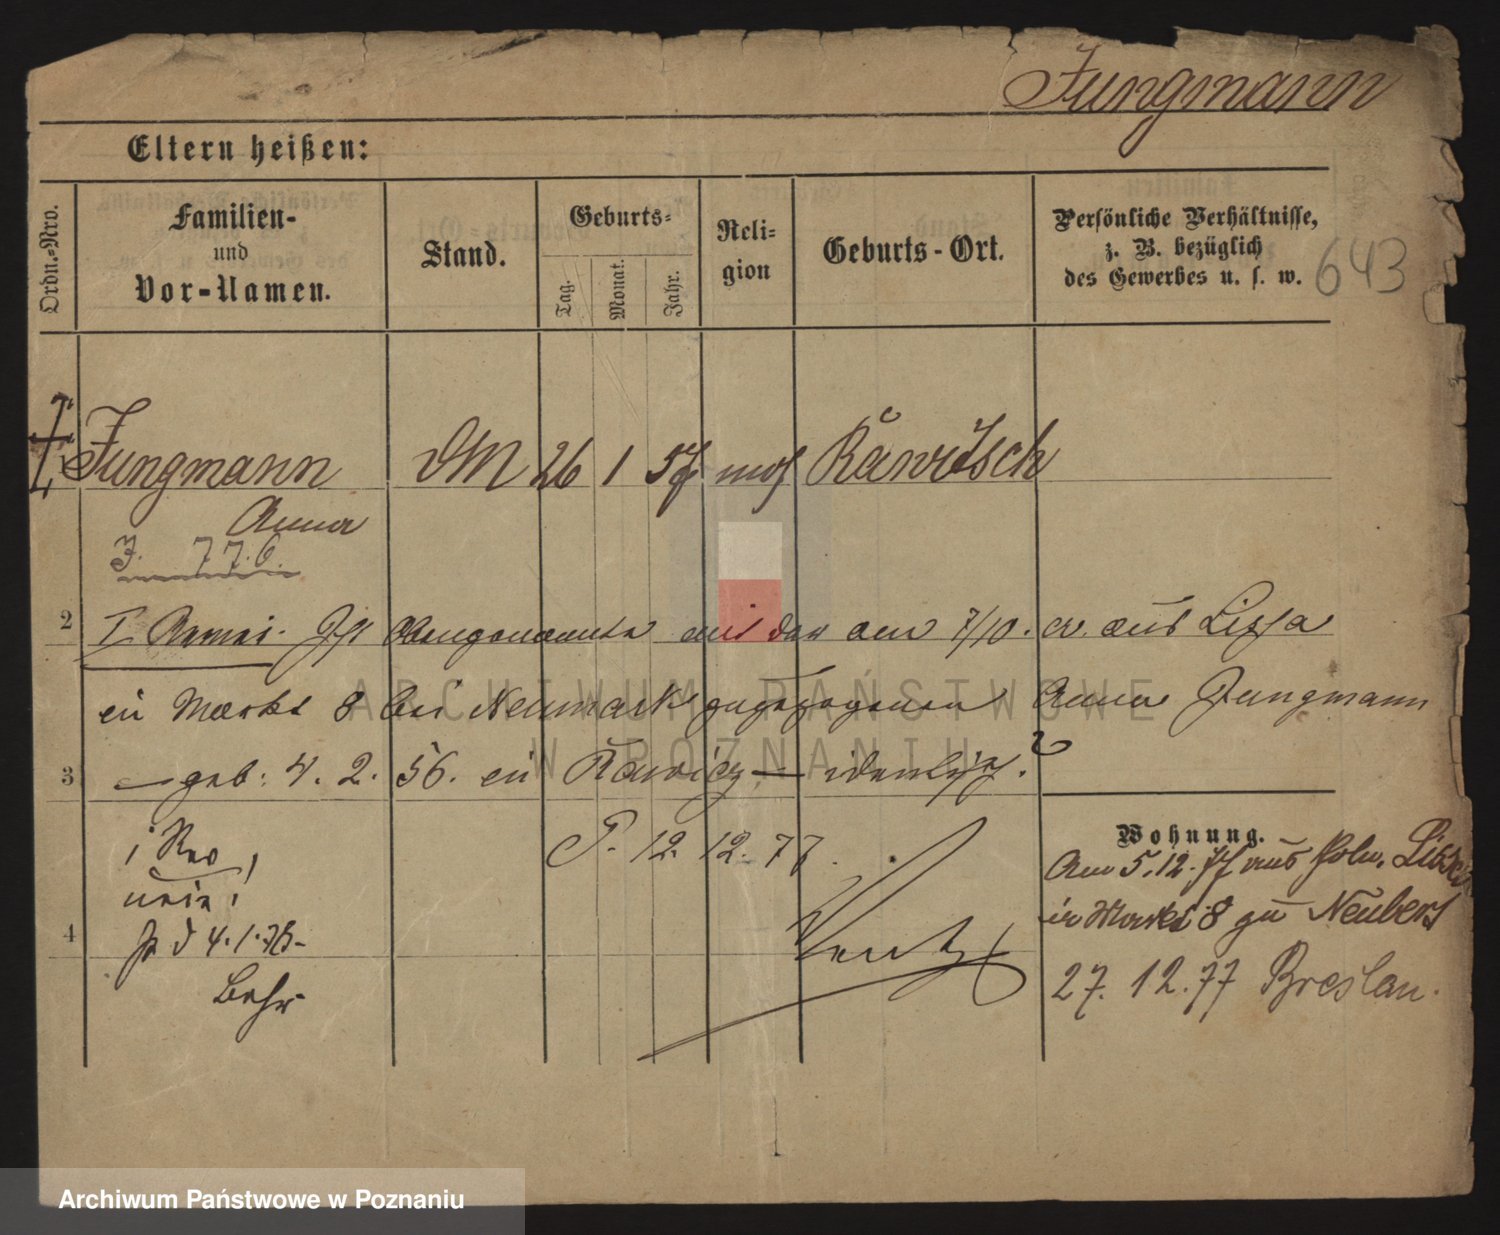 Jungmann
Eltern heißen:
Ordn.-Nro.
Familien-
und
Vor-Namen.
Stand.
Geburts-
Tag.
Monat.
Jahr.
Reli-
gion
Geburts-Ort.
Persönliche Verhältnisse,
z. B. bezüglich
des Gewerbes u. s. w.
643
Jungmann DM 26 1 57 mos Rawitsch
Anna
J. 776.
2
I. Ist Obengenannte mit der am 7/10. cr. aus Lissa
in Markt 8 bei Neumark zugezogenen Anna Jungmann
geb: 4. 2. 56. in Rawicz — identisch?
3
P. 12. 12. 77.
nein!
4
4.1.78
Behr
Wohnung.
Am 5.12.77 aus Poln. Lissa
in Markt 8 zu Neubert
27. 12. 77 Breslau.
ARCHIWUM PAŃSTWOWE
W POZNANIU
Archiwum Państwowe w Poznaniu